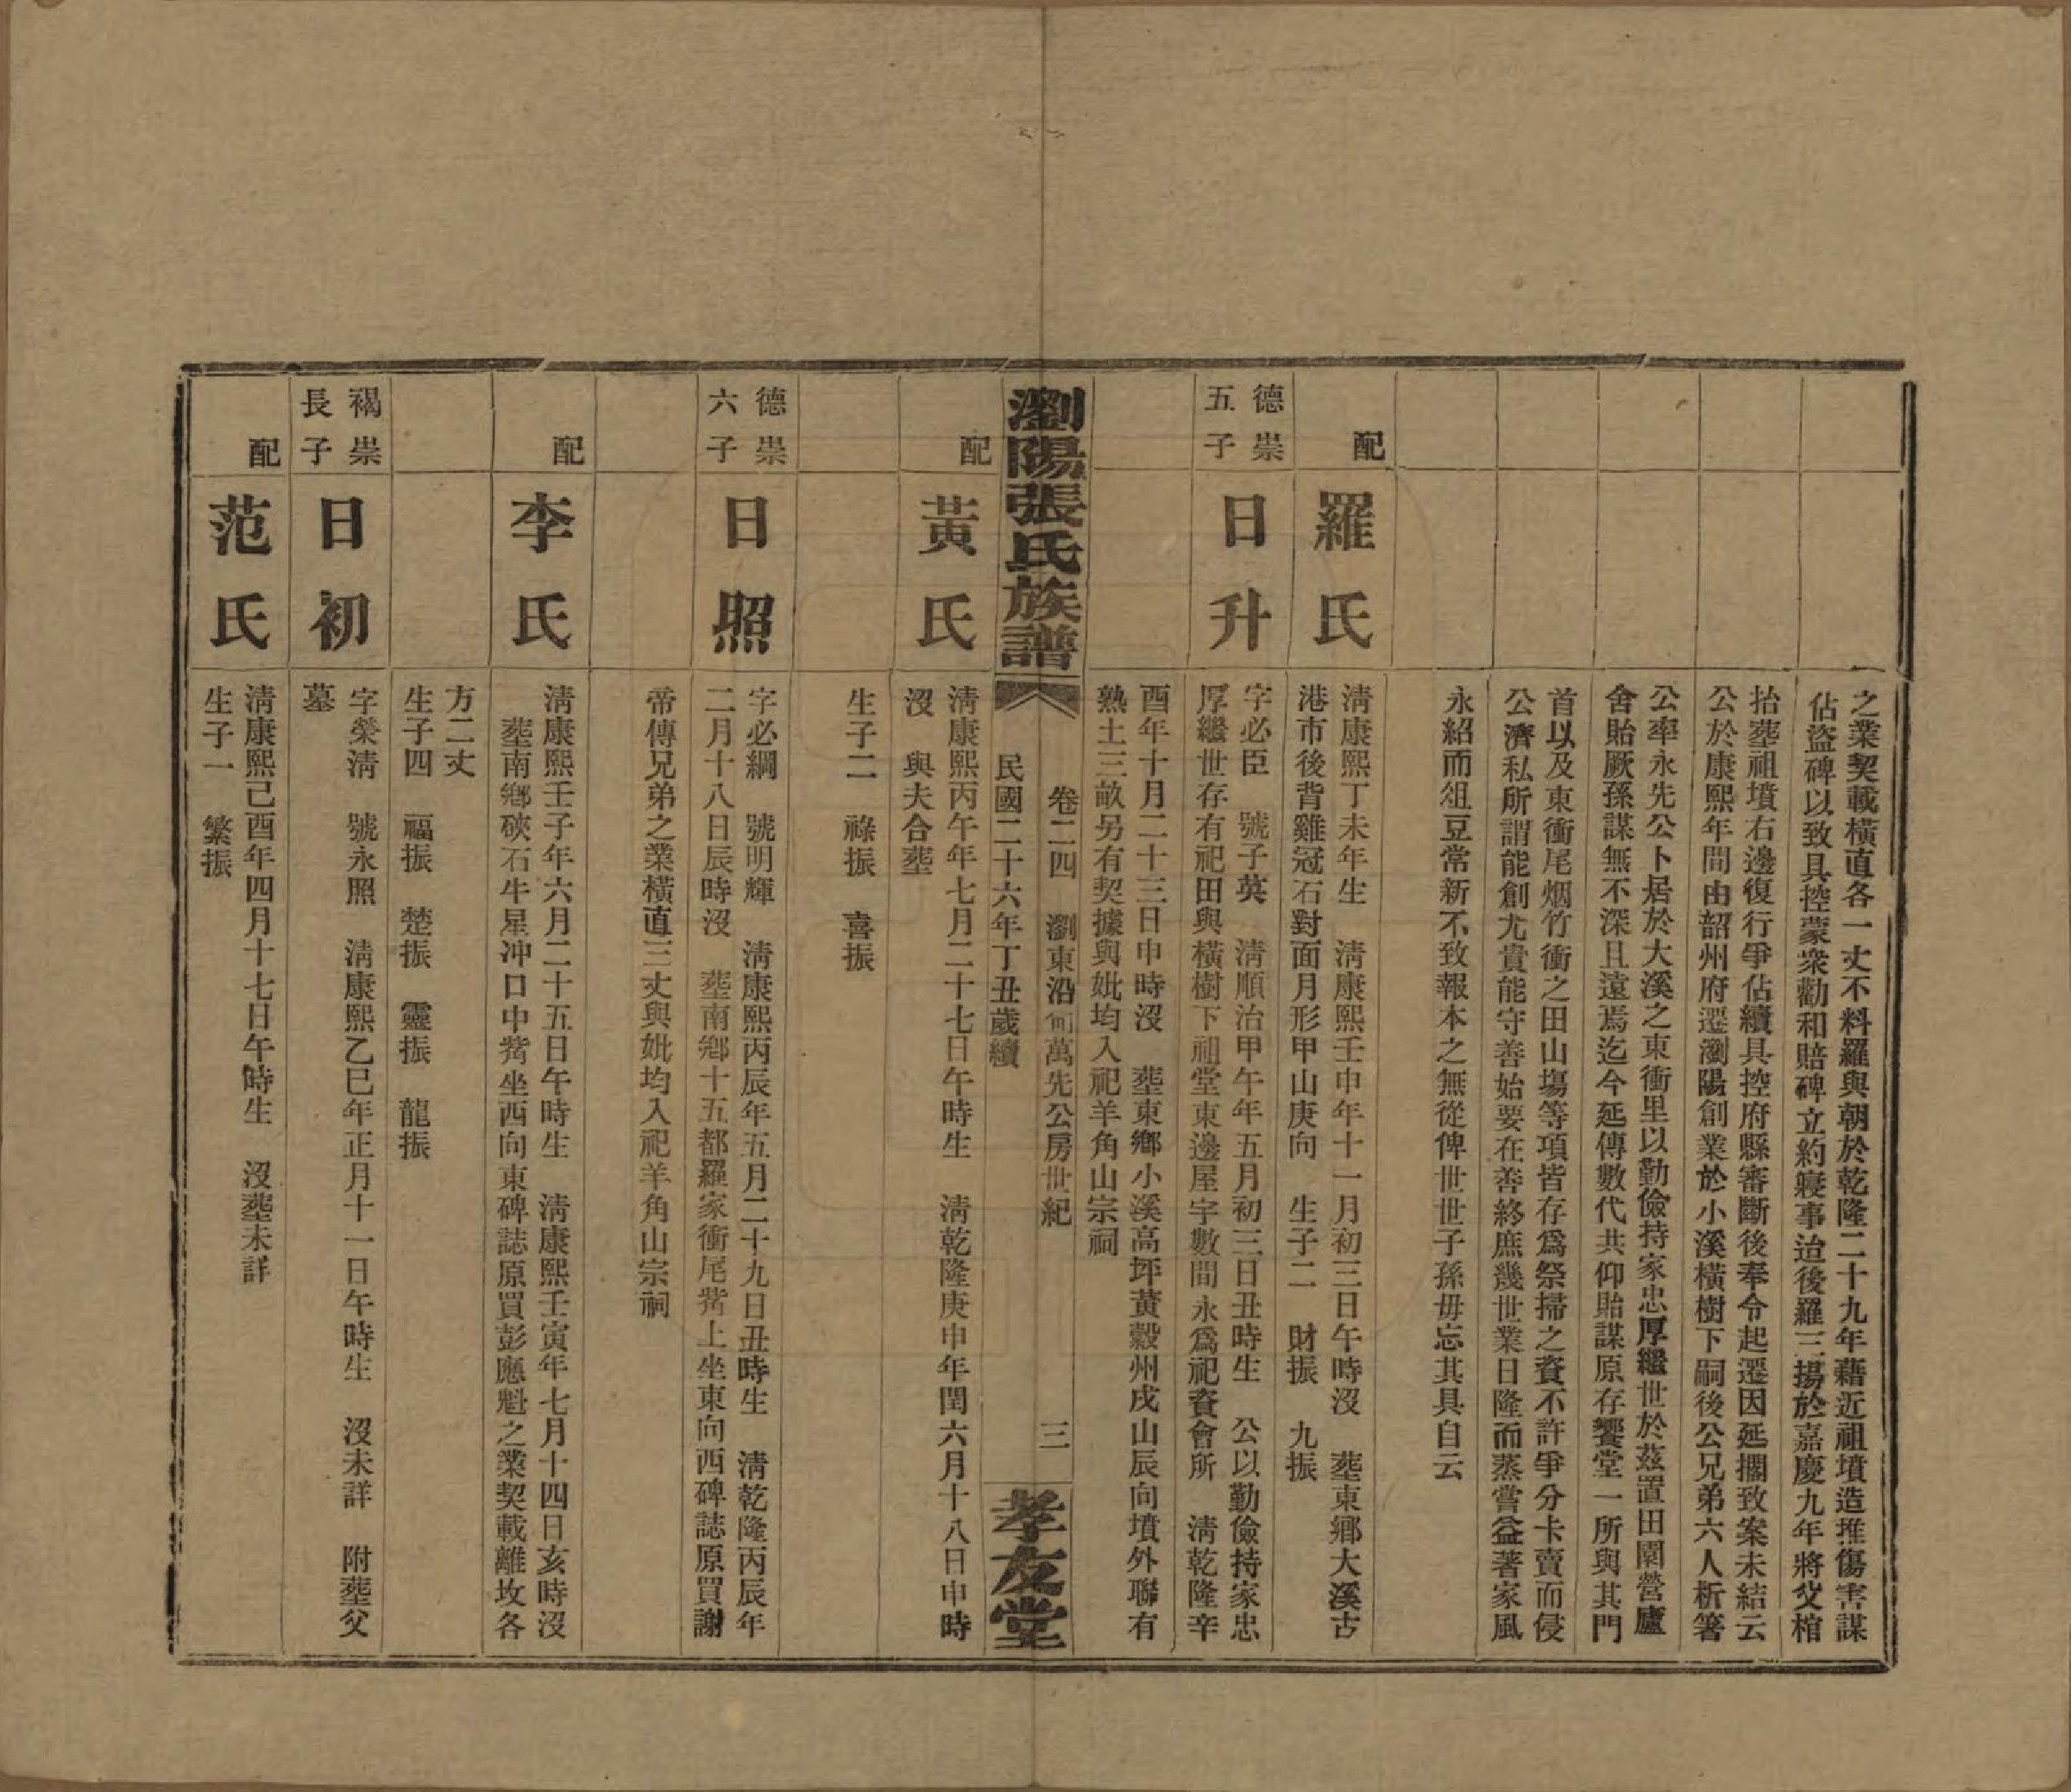 之業契載橫直各一丈不料羅與朝於乾隆二十九年藉近祖墳造堆傷害謀
佔盜碑以致具控蒙衆勸和賠碑立約寢事迨後羅三揚於嘉慶九年將父棺
抬塟祖墳右邊復行爭佔續具控府縣審斷後奉令起遷因延擱致案未結云
公於康熙年間由韶州府遷瀏陽創業於小溪橫樹下嗣後公兄弟六人析箸
公率永先公卜居於大溪之東衝里以勤儉持家忠厚繼世於茲置田園營廬
舍貽厥孫謀無不深且遠焉迄今延傳數代共仰貽謀原存饗堂一所與其門
首以及東衝尾烟竹衝之田山塲等項皆存爲祭掃之資不許爭分卡賣而侵
公濟私所謂能創尤貴能守善始要在善終庶幾世業日隆而蒸嘗益著家風
永紹而俎豆常新不致報本之無從俾世世子孫毋忘其具自云
配
羅氏
淸康熙丁未年生　淸康熙壬申年十一月初三日午時沒　塟東鄉大溪古
港市後背雞冠石對面月形甲山庚向　生子二　財振　九振
德崇
五子
日升
字必臣　號子英　淸順治甲午年五月初三日丑時生　公以勤儉持家忠
厚繼世存有祀田與橫樹下祖堂東邊屋宇數間永爲祀資會所　淸乾隆辛
酉年十月二十三日申時沒　塟東鄉小溪高坪黃穀州戌山辰向墳外聯有
熟土三畝另有契據與妣均入祀羊角山宗祠
瀏陽張氏族譜
卷二四　瀏東沿何萬先公房世紀　三
民國二十六年丁丑歲續
孝友堂
配
黃氏
淸康熙丙午年七月二十七日午時生　淸乾隆庚申年閏六月十八日申時
沒　與夫合塟
生子二　祿振　喜振
德崇
六子
日照
字必綱　號明輝　淸康熙丙辰年五月二十九日丑時生　淸乾隆丙辰年
二月十八日辰時沒　塟南鄉十五都羅家衝尾嘴上坐東向西碑誌原買謝
帝傳兄弟之業橫直三丈與妣均入祀羊角山宗祠
配
李氏
淸康熙壬子年六月二十五日午時生　淸康熙壬寅年七月十四日亥時沒
塟南鄉硤石牛星冲口中嘴坐西向東碑誌原買彭應魁之業契載離坟各
方二丈
生子四　福振　楚振　靈振　龍振
裼崇
長子
日初
字榮淸　號永照　淸康熙乙巳年正月十一日午時生　沒未詳　附塟父
墓
配
范氏
淸康熙己酉年四月十七日午時生　沒塟未詳
生子一　繁振